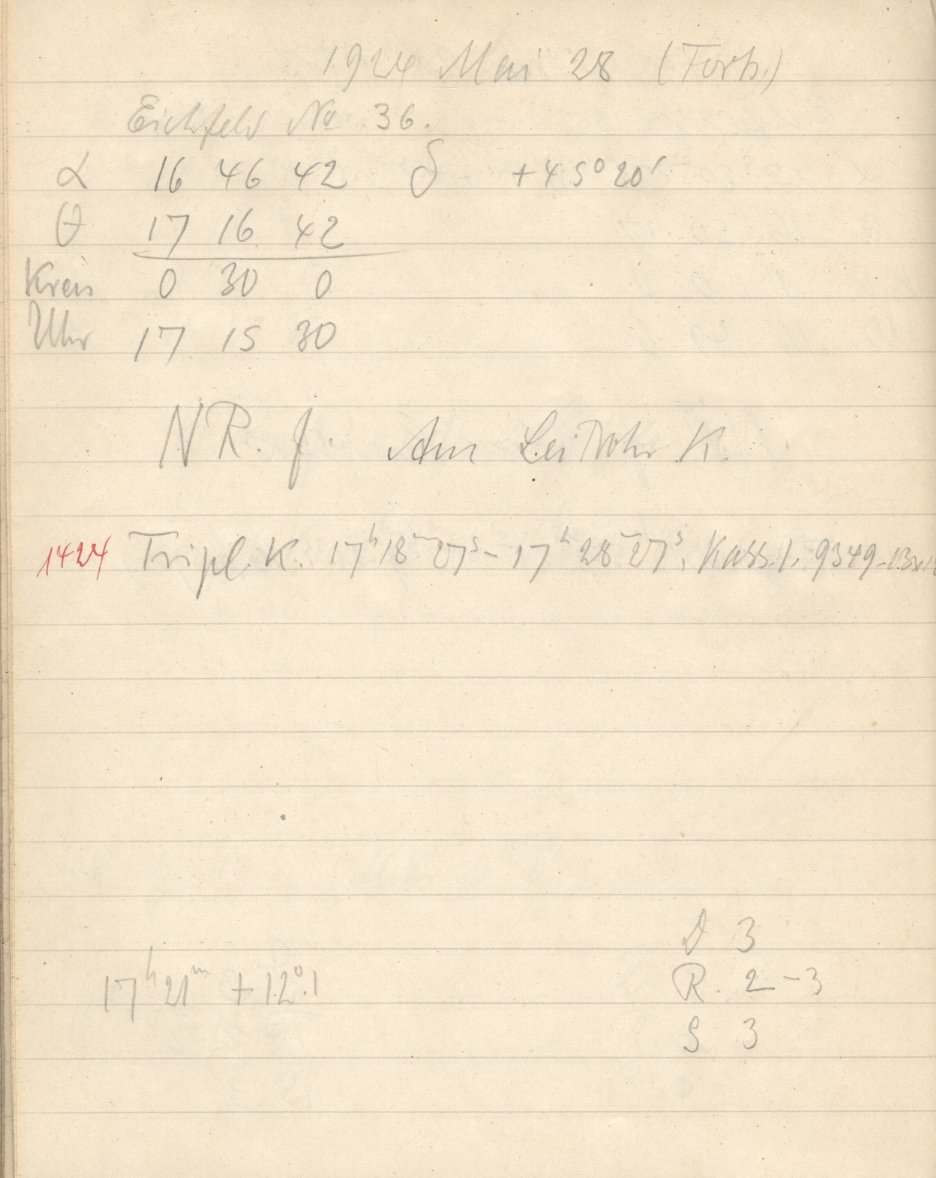 1924 Mai 28 (Forts.)
Eichfeld No 36.
α 16 46 42 δ +45° 20′
θ 17 16 42
Kreis 0 30 0
Uhr 17 15 30
NR. f. Am Leitrohr K.
1424 Tripl. K. 17ʰ18ᵐ27ˢ – 17ʰ28ᵐ27ˢ, Kass. 1. 9349
D 3
17ʰ21ᵐ +12°.1 R. 2–3
S 3